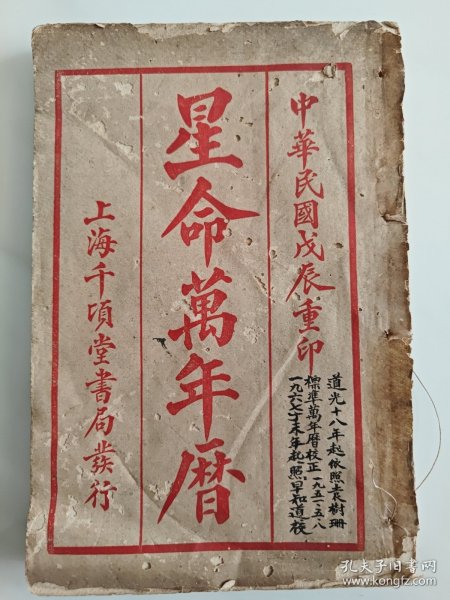 中華民國戊辰重印
道光十八年起依照袁樹珊
標準萬年曆校正 一九五一·五·八
一九六七丁未年起照早知道校
星命萬年曆
上海千項堂書局發行
孔夫子旧书网
www.kongfz.com